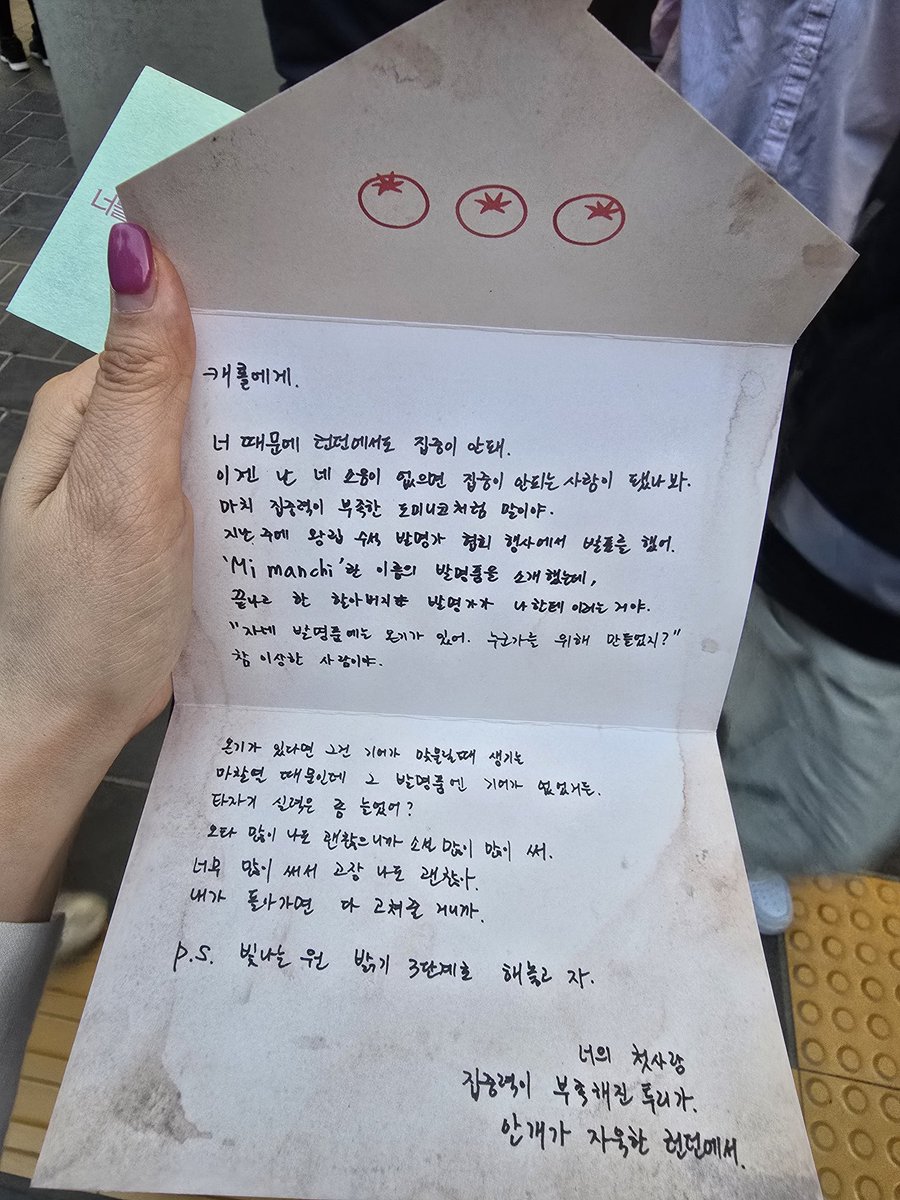 너를
캐롤에게.
너 때문에 런던에서도 집중이 안돼.
이젠 난 네 소음이 없으면 집중이 안되는 사람이 됐나봐.
마치 집중력이 부족한 도미니코처럼 말이야.
지난 주에 왕립 수석 발명가 협회 행사에서 발표를 했어.
'Mi manchi'란 이름의 발명품을 소개했는데,
끝나고 한 할아버지 발명가가 나한테 이러는거야.
"자네 발명품에는 온기가 있어. 누군가를 위해 만들었지?"
참 이상한 사람이야.
온기가 있다면 그건 기어가 맞물릴때 생기는
마찰열 때문인데 그 발명품엔 기어가 없었거든.
타자기 실력은 좀 늘었어?
오타 많이 나도 괜찮으니까 소설 많이 많이 써.
너무 많이 써서 고장 나도 괜찮아.
내가 돌아가면 다 고쳐줄 거니까.
P.S. 빛나는 원 밝기 3단계로 해놓고 자.
너의 첫사랑
집중력이 부족해진 투리가.
안개가 자욱한 런던에서.